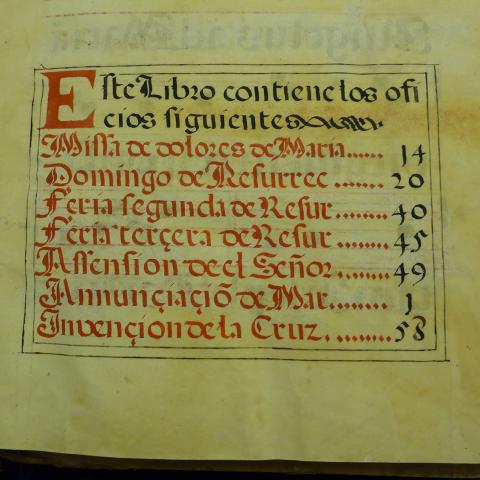 Este Libro contiene los ofi
cios siguientes
Missa de dolores de Maria...... 14
Domingo de Resurrec ....... 20
Feria segunda de Resur ........ 40
Feria terçera de Resur ........ 45
Assension de el Señor ........ 49
Annunçiaçiõ de Mar........ 1
Invençion de la Cruz. ........ 58